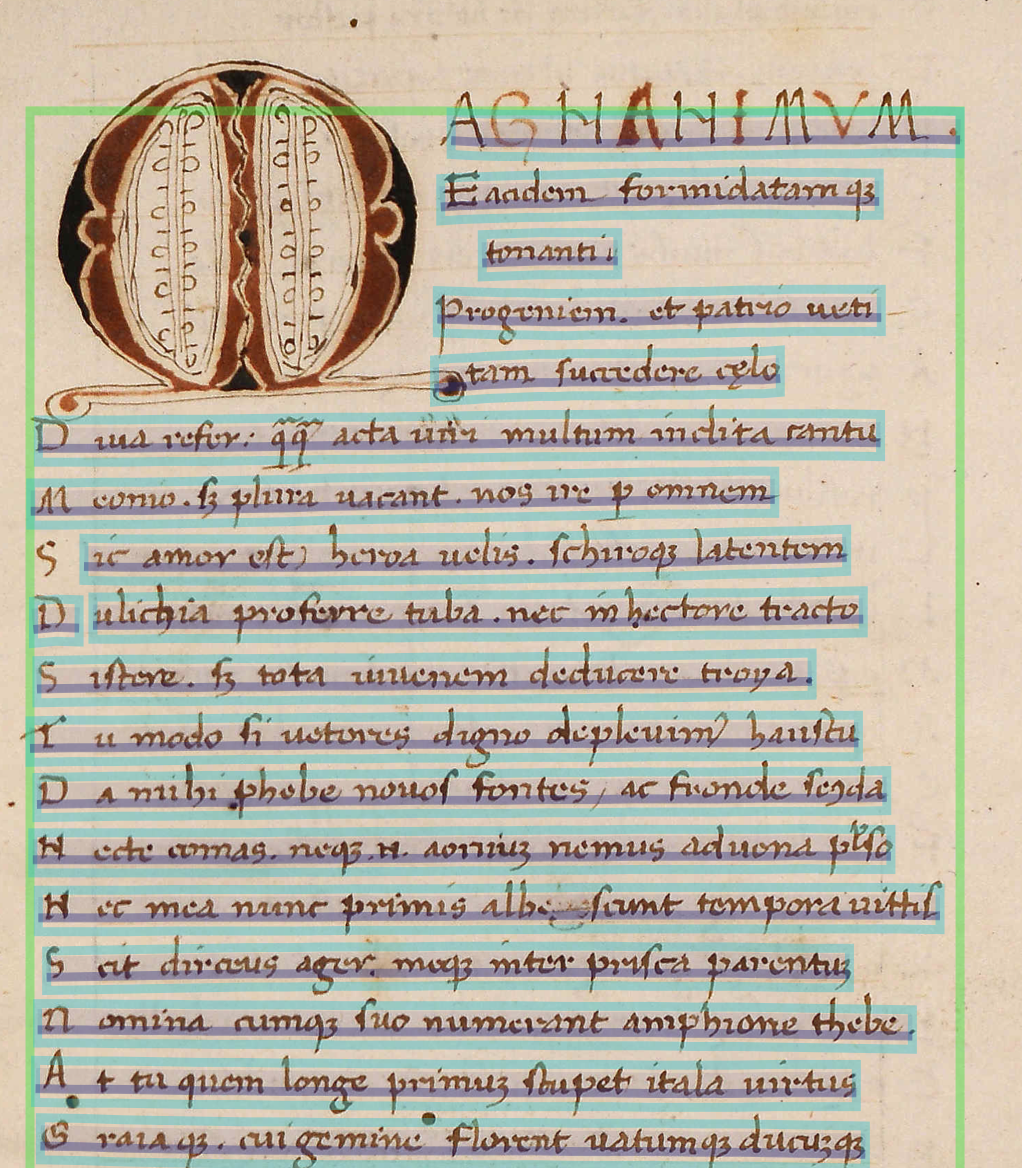 MAGNANIMVM.
Eacidem formidatamqꝫ
tonanti
Progeniem. et patrio ueti
tam succedere cęlo
D iua refer. q̄q̄ acta uiri multum inclita cantu
M eonio. sꝫ plura uacant. nos ire ꝑ omnem
S ic amor est) heroa uelis. schiroqꝫ latentem
D ulichia proferre tuba. nec in hectore tracto
S istere. sꝫ tota iuuenem deducere troya.
T u modo si ueteres digno depleuimꝰ haustu
D a mihi phebe nouos fontes, ac fronde seꝯda
N ecte comas. neqꝫ .n. aoniuꝫ nemus aduena pulso
N ec mea nunc primis albescunt tempora uittis
S cit dirceus ager. meqꝫ inter prisca parentuꝫ
N omina cumqꝫ suo numerant amphione thebe.
A t tu quem longe primuꝫ stupet itala uirtus
G raiaqꝫ. cui gemine florent uatumqꝫ ducuꝫqꝫ